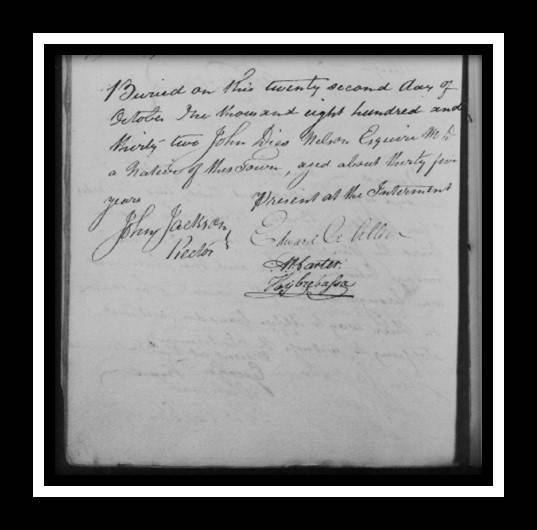 Buried on this twenty second day of
October One thousand eight hundred and
thirty two John Dies Nelson Esquire M.D.
a Native of this Town, aged about thirty
years
Present at the Interment
John Jackson
Rector
Edward